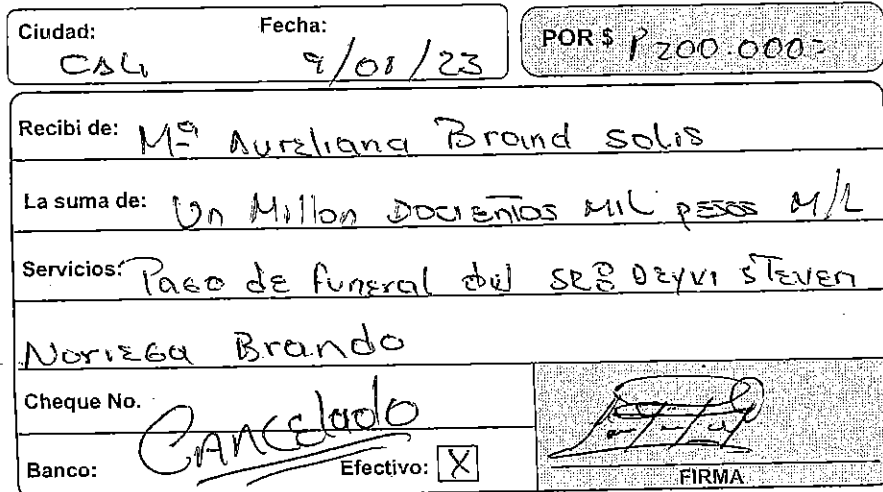 Ciudad: Fecha: POR $ 1'200.000=
CALI 9/01/23
Recibi de: Mª Aureliana Brand solis
La suma de: Un Millon DOCIENTOS MIL PESOS M/L
Servicios: PAGO DE funeral del SRº DEYVI STEVEN
NORIEGA Brando
Cheque No. CANCElado
Banco: Efectivo: X
FIRMA